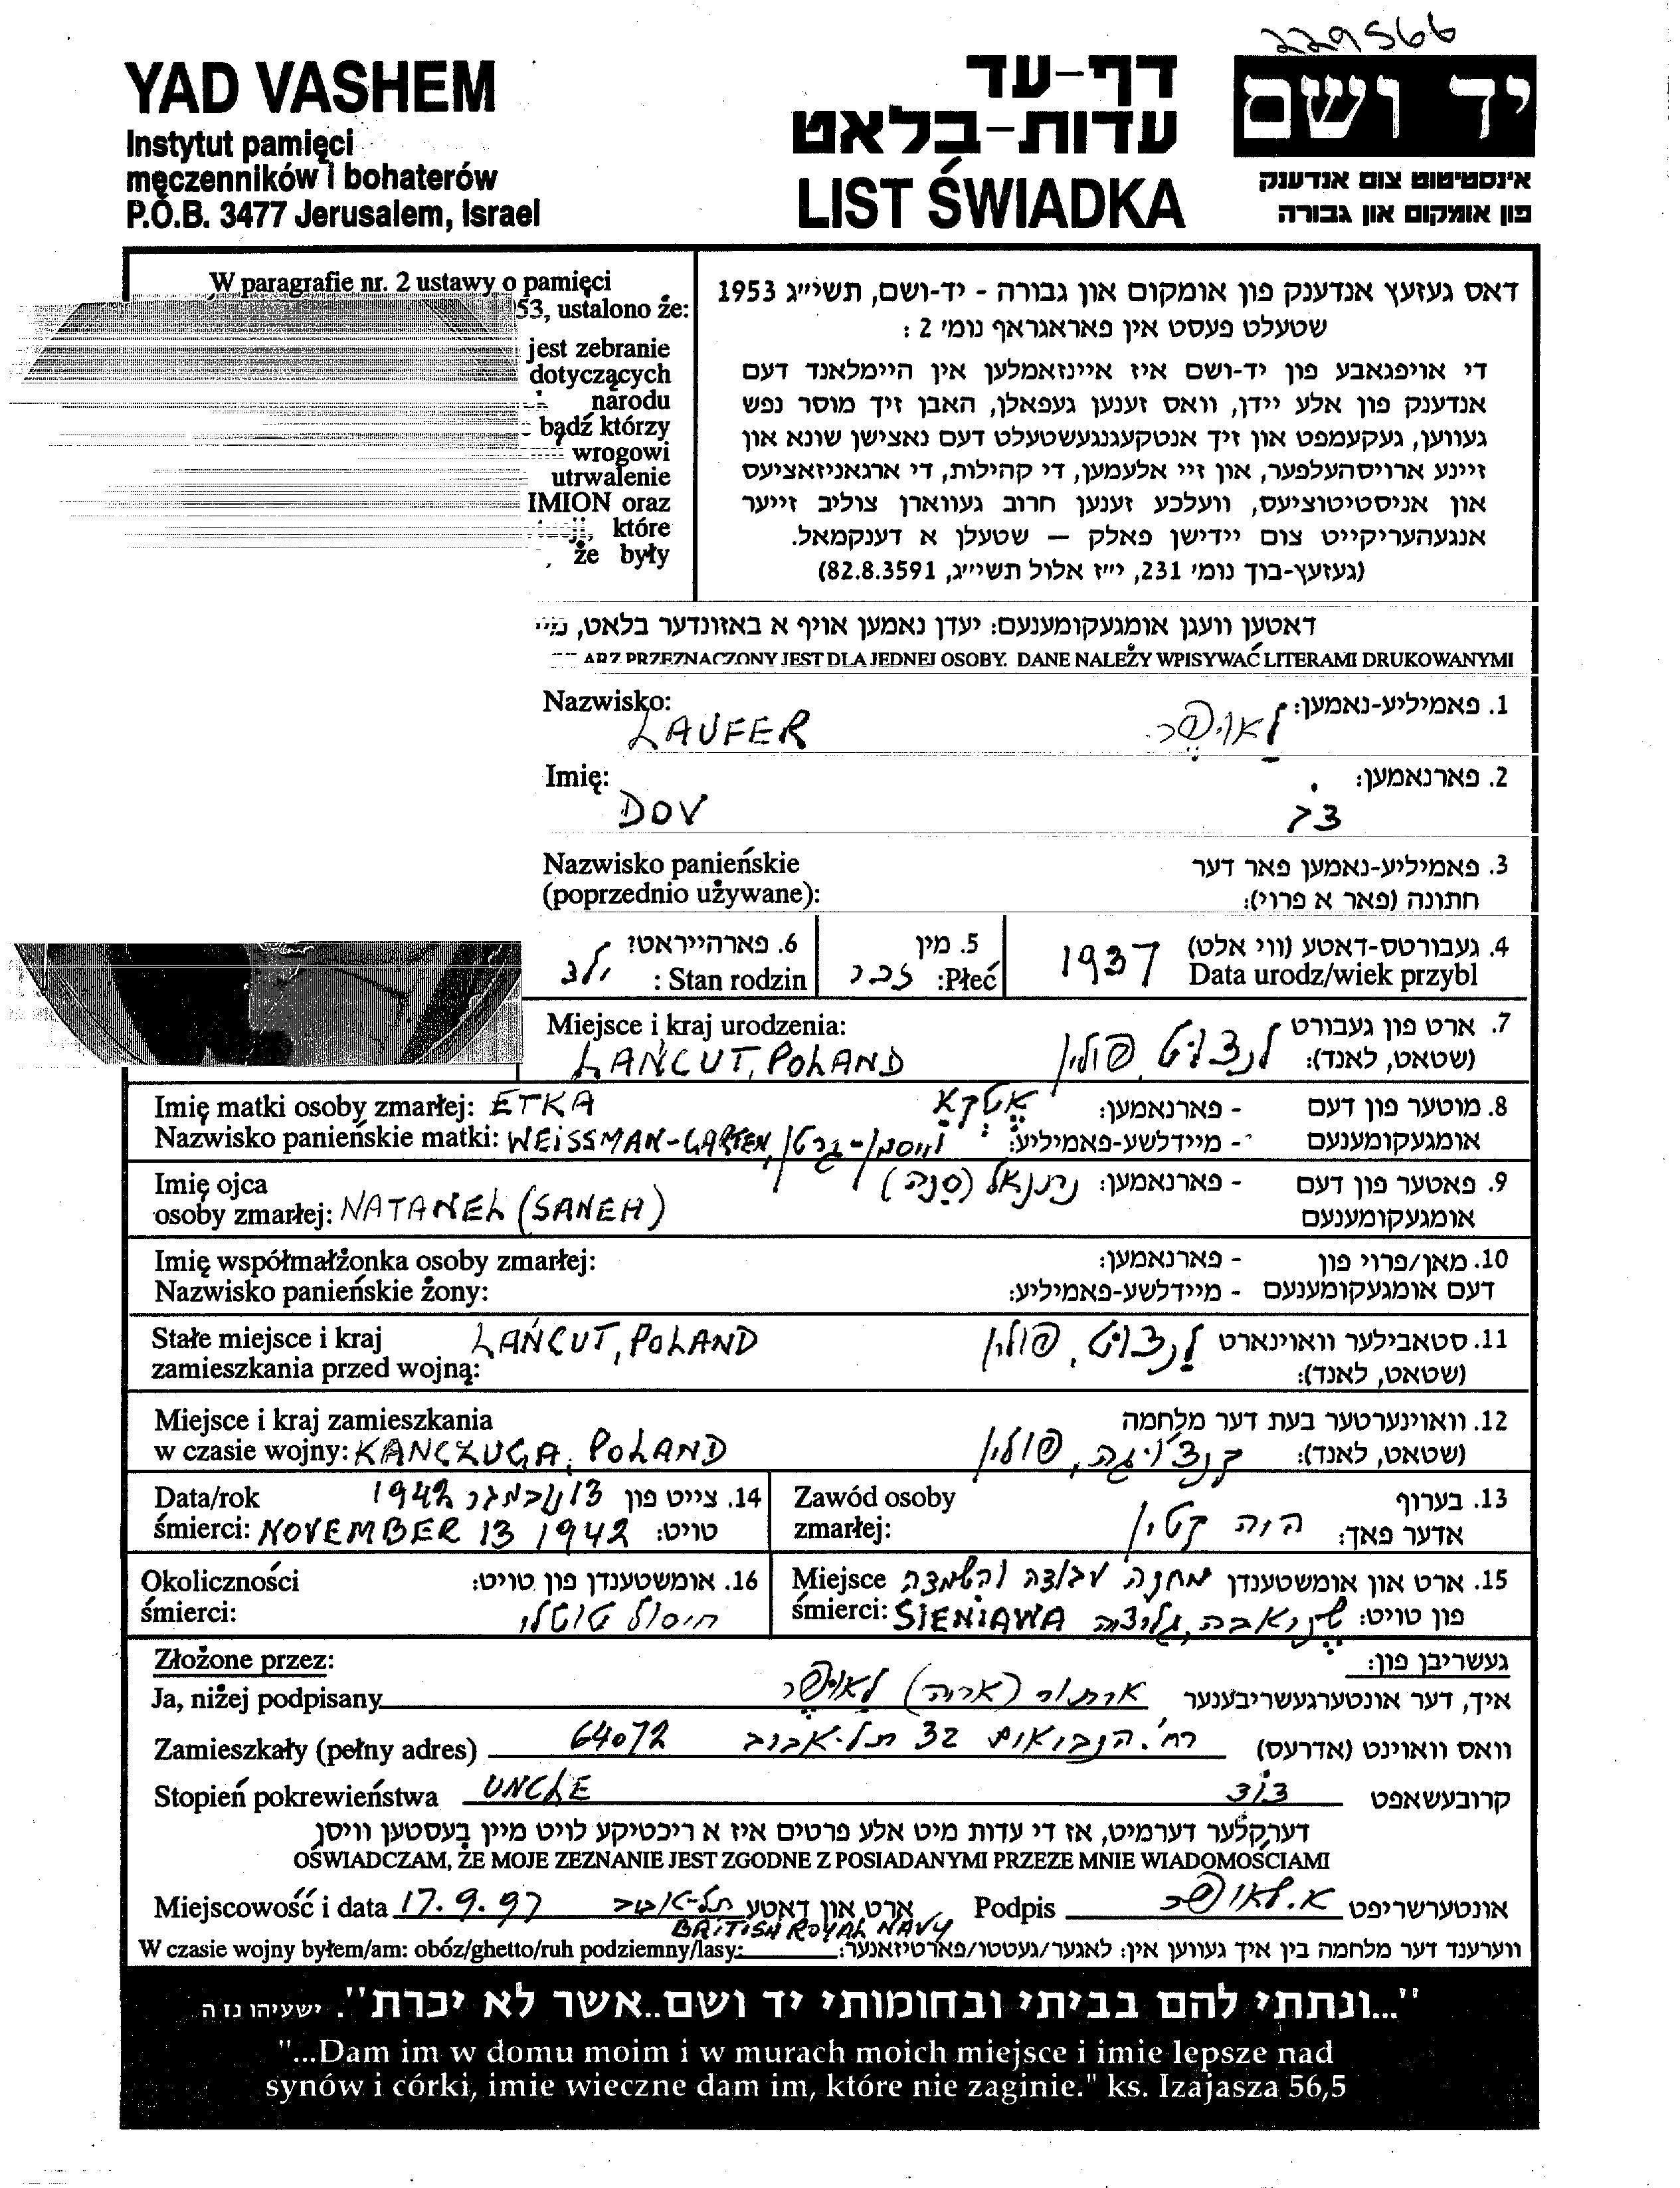 229566
YAD VASHEM
Instytut pamięci
męczenników i bohaterów
P.O.B. 3477 Jerusalem, Israel
דף-עד
עדות-בלאט
LIST ŚWIADKA
יד ושם
אינסטיטוט צום אנדענק
פון אומקום און גבורה
W paragrafie nr. 2 ustawy o pamięci
53, ustalono że:
jest zebranie
dotyczących
narodu
bądź którzy
wrogowi
utrwalenie
IMION oraz
które
że były
דאס געזעץ אנדענק פון אומקום און גבורה - יד-ושם, תשי״ג 1953
שטעלט פעסט אין פאראגראף נומ׳ 2 :
די אויפגאבע פון יד-ושם איז איינזאמלען אין היימלאנד דעם
אנדענק פון אלע יידן, וואס זענען געפאלן, האבן זיך מוסר נפש
געווען, געקעמפט און זיך אנטקעגנגעשטעלט דעם נאצישן שונא און
זיינע ארויסהעלפער, און זיי אלעמען, די קהילות, די ארגאניזאציעס
און אניסטיטוציעס, וועלכע זענען חרוב געווארן צוליב זייער
אנגעהעריקייט צום יידישן פאלק – שטעלן א דענקמאל.
(געזעץ-בוך נומ׳ 231, י״ז אלול תשי״ג, 82.8.3591)
דאטען וועגן אומגעקומענעם: יעדן נאמען אויף א באזונדער בלאט,
ARZ PRZEZNACZONY JEST DLA JEDNEJ OSOBY. DANE NALEŻY WPISYWAĆ LITERAMI DRUKOWANYMI
Nazwisko: 1. פאמיליע-נאמען: לאופר
LAUFER
Imię: 2. פארנאמען:
DOV דב
Nazwisko panieńskie 3. פאמיליע-נאמען פאר דער
(poprzednio używane): חתונה (פאר א פרוי):
4. געבורטס-דאטע (ווי אלט) 1937 5. מין 6. פארהייראט?
Data urodz/wiek przybl Płeć: זכר Stan rodzin : ילד
Miejsce i kraj urodzenia: 7. ארט פון געבורט
LAŃCUT, POLAND (שטאט, לאנד): לנצוט, פולין
Imię matki osoby zmarłej: ETKA 8. מוטער פון דעם - פארנאמען: אטקא
Nazwisko panieńskie matki: WEISSMAN-GARTEN אומגעקומענעם - מיידלשע-פאמיליע: וייסמן-גרטן
Imię ojca 9. פאטער פון דעם - פארנאמען: נתנאל (סנה)
osoby zmarłej: NATANEL (SANEH) אומגעקומענעם
Imię współmałżonka osoby zmarłej: 10. מאן/פרוי פון - פארנאמען:
Nazwisko panieńskie żony: דעם אומגעקומענעם - מיידלשע-פאמיליע:
Stałe miejsce i kraj LAŃCUT, POLAND 11. סטאבילער וואוינארט לנצוט, פולין
zamieszkania przed wojną: (שטאט, לאנד):
Miejsce i kraj zamieszkania 12. וואוינערטער בעת דער מלחמה
w czasie wojny: KANCZUGA, POLAND (שטאט, לאנד): קנצ'וגה, פולין
Data/rok 14. צייט פון 13 נובמבר 1942
śmierci: NOVEMBER 13 1942 טויט:
Zawód osoby 13. בערוף
zmarłej: אדער פאך:
Okoliczności 16. אומשטענדן פון טויט:
śmierci: חיסול טוטלי
Miejsce 15. ארט און אומשטענדן מחנה עבודה והשמדה
śmierci: SIENIAWA פון טויט: שניאבה, גליציה
Złożone przez: געשריבן פון:
Ja, niżej podpisany איך, דער אונטערגעשריבענער ארתור (אריה) לאופר
Zamieszkały (pełny adres) וואס וואוינט (אדרעס) רח׳ הנביאים 32 תל-אביב 64072
Stopień pokrewieństwa UNCLE קרובעשאפט דוד
דערקלער דערמיט, אז די עדות מיט אלע פרטים איז א ריכטיקע לויט מיין בעסטען וויסן
OŚWIADCZAM, ŻE MOJE ZEZNANIE JEST ZGODNE Z POSIADANYMI PRZEZE MNIE WIADOMOŚCIAMI
Miejscowość i data 17.9.97 ארט און דאטע תל-אביב Podpis אונטערשריפט א. לאופר
BRITISH ROYAL NAVY
W czasie wojny byłem/am: obóz/ghetto/ruh podziemny/lasy: ווערענד דער מלחמה בין איך געווען אין: לאגער/געטטו/פארטיזאנער:
"...ונתתי להם בביתי ובחומותי יד ושם..אשר לא יכרת". ישעיהו נז ה
"...Dam im w domu moim i w murach moich miejsce i imie lepsze nad
synów i córki, imie wieczne dam im, które nie zaginie." ks. Izajasza 56,5